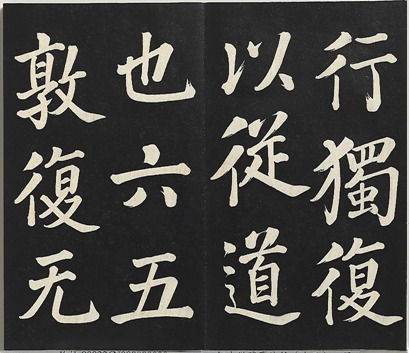 行獨復
以從道
也六五
敦復无